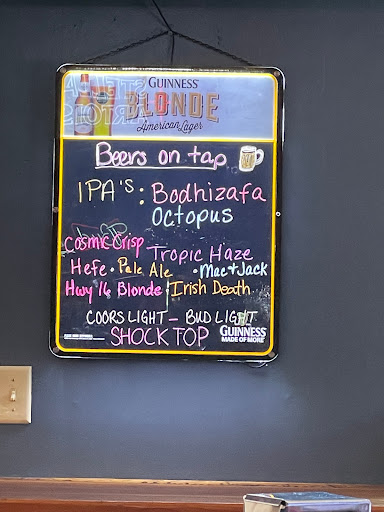 GUINNESS
BLONDE
American Lager
Beers on tap
IPA's: Bodhizafa
Octopus
Cosmic Crisp Tropic Haze
Hefe • Pale Ale • Mac + Jack
Hwy 16 Blonde • Irish Death
COORS LIGHT - BUD LIGHT
SHOCK TOP
GUINNESS
MADE OF MORE